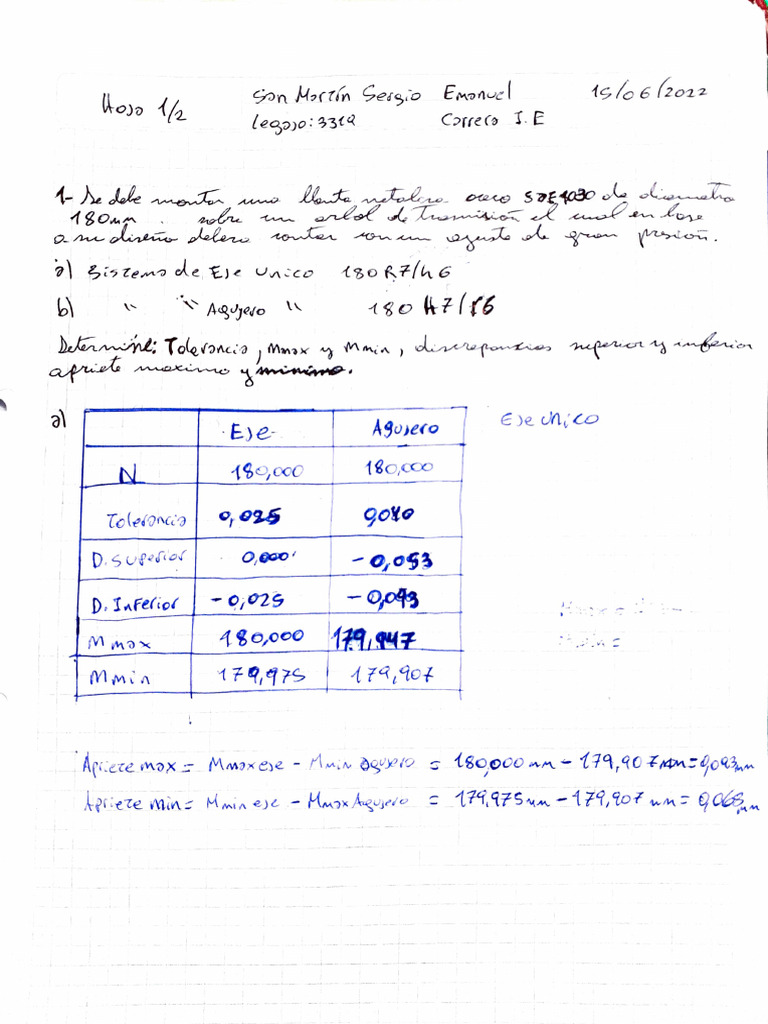 Hoja 1/2
San Martín Sergio Emanuel
15/06/2022
Legajo: 3319
Carrera I.E
1- Se debe montar una llanta metalera acero SAE 1030 de diametro
180mm. sobre un arbol de transmisión el cual en base
a su diseño debera contar con un ajuste de gran presión.
a) Sistema de Eje Unico 180 R7/h6
b) " " Agujero " 180 H7/r6
Determine: Tolerancia, Mmax y Mmin, discrepancias superior y inferior
apriete maximo y minimo.
a)
Eje Unico
Eje Agujero
N 180,000 180,000
Tolerancia 0,025 0,040
D. Superior 0,000 -0,053
D. Inferior -0,025 -0,093
M max 180,000 179,947
M min 179,975 179,907
Apriete max = Mmax eje - Mmin agujero = 180,000 mm - 179,907 mm = 0,093 mm
Apriete min = Mmin eje - Mmax Agujero = 179,975 mm - 179,907 mm = 0,068 mm